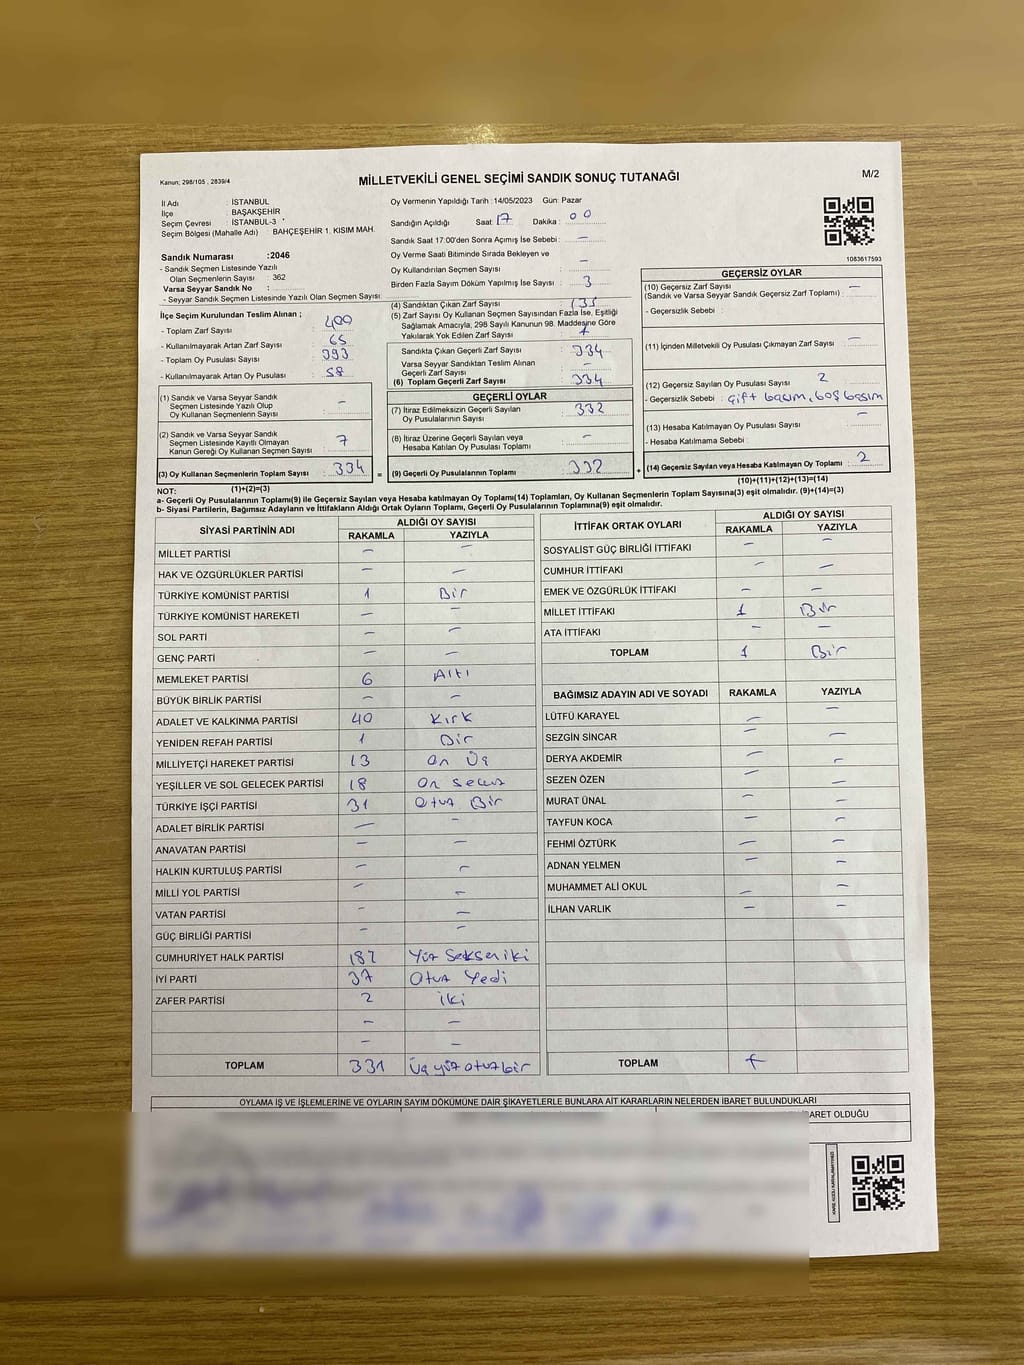 Kanun; 298/105 , 2839/4
MİLLETVEKİLİ GENEL SEÇİMİ SANDIK SONUÇ TUTANAĞI
M/2
İl Adı : İSTANBUL
İlçe : BAŞAKŞEHİR
Seçim Çevresi : İSTANBUL-3
Seçim Bölgesi (Mahalle Adı) BAHÇEŞEHİR 1. KISIM MAH.
Sandık Numarası :2046
- Sandık Seçmen Listesinde Yazılı
Olan Seçmenlerin Sayısı : 362
Varsa Seyyar Sandık No :
- Seyyar Sandık Seçmen Listesinde Yazılı Olan Seçmen Sayısı:
İlçe Seçim Kurulundan Teslim Alınan ;
- Toplam Zarf Sayısı : 400
- Kullanılmayarak Artan Zarf Sayısı : 65
- Toplam Oy Pusulası Sayısı : 393
- Kullanılmayarak Artan Oy Pusulası : 58
(1) Sandık ve Varsa Seyyar Sandık
Seçmen Listesinde Yazılı Olup
Oy Kullanan Seçmenlerin Sayısı : -
(2) Sandık ve Varsa Seyyar Sandık
Seçmen Listesinde Kayıtlı Olmayan
Kanun Gereği Oy Kullanan Seçmen Sayısı : 7
(3) Oy Kullanan Seçmenlerin Toplam Sayısı : 334 =
(1)+(2)=(3)
Oy Vermenin Yapıldığı Tarih :14/05/2023 Gün: Pazar
Sandığın Açıldığı Saat : 17 Dakika : 00
Sandık Saat 17:00'den Sonra Açımış İse Sebebi : -
Oy Verme Saati Bitiminde Sırada Bekleyen ve
Oy Kullandırılan Seçmen Sayısı : -
Birden Fazla Sayım Döküm Yapılmış İse Sayısı : 3
(4) Sandıktan Çıkan Zarf Sayısı :
(5) Zarf Sayısı Oy Kullanan Seçmen Sayısından Fazla İse, Eşitliği
Sağlamak Amacıyla, 298 Sayılı Kanunun 98. Maddesine Göre
Yakılarak Yok Edilen Zarf Sayısı : 1
Sandıkta Çıkan Geçerli Zarf Sayısı : 334
Varsa Seyyar Sandıktan Teslim Alınan
Geçerli Zarf Sayısı : -
(6) Toplam Geçerli Zarf Sayısı : 334
GEÇERLİ OYLAR
(7) İtiraz Edilmeksizin Geçerli Sayılan
Oy Pusulalarının Sayısı : 332
(8) İtiraz Üzerine Geçerli Sayılan veya
Hesaba Katılan Oy Pusulası Toplamı : -
(9) Geçerli Oy Pusulalarının Toplamı : 332 +
1083617593
GEÇERSİZ OYLAR
(10) Geçersiz Zarf Sayısı : -
(Sandık ve Varsa Seyyar Sandık Geçersiz Zarf Toplamı)
- Geçersizlik Sebebi :
(11) İçinden Milletvekili Oy Pusulası Çıkmayan Zarf Sayısı : -
(12) Geçersiz Sayılan Oy Pusulası Sayısı : 2
- Geçersizlik Sebebi : çift basım, boş basım
(13) Hesaba Katılmayan Oy Pusulası Sayısı : -
- Hesaba Katılmama Sebebi :
(14) Geçersiz Sayılan veya Hesaba Katılmayan Oy Toplamı : 2
(10)+(11)+(12)+(13)=(14)
NOT:
a- Geçerli Oy Pusulalarının Toplamı(9) ile Geçersiz Sayılan veya Hesaba katılmayan Oy Toplamı(14) Toplamları, Oy Kullanan Seçmenlerin Toplam Sayısına(3) eşit olmalıdır. (9)+(14)=(3)
b- Siyasi Partilerin, Bağımsız Adayların ve İttifakların Aldığı Ortak Oyların Toplamı, Geçerli Oy Pusulalarının Toplamına(9) eşit olmalıdır.
SİYASİ PARTİNİN ADI ALDIĞI OY SAYISI
RAKAMLA YAZIYLA
MİLLET PARTİSİ - -
HAK VE ÖZGÜRLÜKLER PARTİSİ - -
TÜRKİYE KOMÜNİST PARTİSİ 1 Bir
TÜRKİYE KOMÜNİST HAREKETİ - -
SOL PARTİ - -
GENÇ PARTİ - -
MEMLEKET PARTİSİ 6 Altı
BÜYÜK BİRLİK PARTİSİ - -
ADALET VE KALKINMA PARTİSİ 40 Kırk
YENİDEN REFAH PARTİSİ 1 Bir
MİLLİYETÇİ HAREKET PARTİSİ 13 On Üç
YEŞİLLER VE SOL GELECEK PARTİSİ 18 On sekiz
TÜRKİYE İŞÇİ PARTİSİ 31 Otuz Bir
ADALET BİRLİK PARTİSİ - -
ANAVATAN PARTİSİ - -
HALKIN KURTULUŞ PARTİSİ - -
MİLLİ YOL PARTİSİ - -
VATAN PARTİSİ - -
GÜÇ BİRLİĞİ PARTİSİ - -
CUMHURİYET HALK PARTİSİ 182 Yüz Seksen iki
İYİ PARTİ 37 Otuz Yedi
ZAFER PARTİSİ 2 iki
- -
- -
TOPLAM 331 Üç yüz otuz bir
İTTİFAK ORTAK OYLARI ALDIĞI OY SAYISI
RAKAMLA YAZIYLA
SOSYALİST GÜÇ BİRLİĞİ İTTİFAKI - -
CUMHUR İTTİFAKI - -
EMEK VE ÖZGÜRLÜK İTTİFAKI - -
MİLLET İTTİFAKI 1 Bir
ATA İTTİFAKI - -
TOPLAM 1 Bir
BAĞIMSIZ ADAYIN ADI VE SOYADI RAKAMLA YAZIYLA
LÜTFÜ KARAYEL - -
SEZGİN SİNCAR - -
DERYA AKDEMİR - -
SEZEN ÖZEN - -
MURAT ÜNAL - -
TAYFUN KOCA - -
FEHMİ ÖZTÜRK - -
ADNAN YELMEN - -
MUHAMMET ALİ OKUL - -
İLHAN VARLIK - -
TOPLAM
OYLAMA İŞ VE İŞLEMLERİNE VE OYLARIN SAYIM DÖKÜMÜNE DAİR ŞİKAYETLERLE BUNLARA AİT KARARLARIN NELERDEN İBARET BULUNDUKLARI
İBARET OLDUĞU